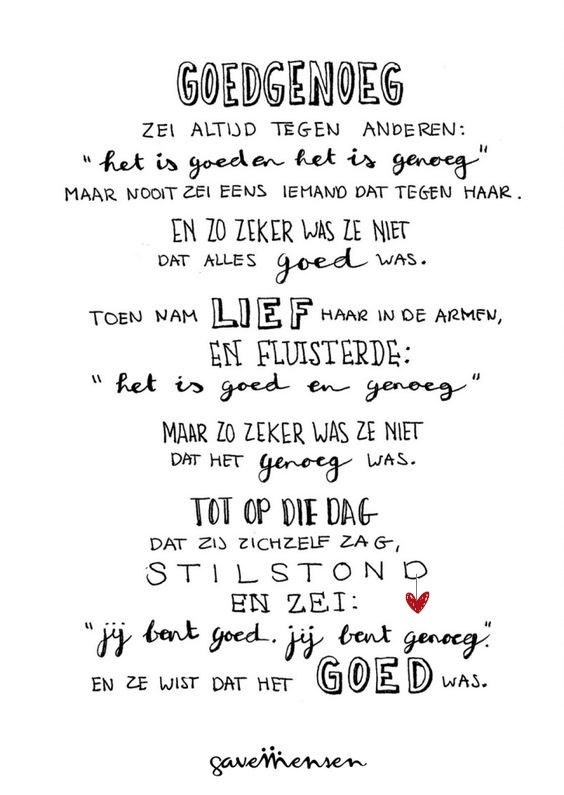 GOEDGENOEG
ZEI ALTIJD TEGEN ANDEREN:
"het is goed en het is genoeg"
MAAR NOOIT ZEI EENS IEMAND DAT TEGEN HAAR.
EN ZO ZEKER WAS ZE NIET
DAT ALLES goed WAS.
TOEN NAM LIEF HAAR IN DE ARMEN,
EN FLUISTERDE:
"het is goed en genoeg"
MAAR ZO ZEKER WAS ZE NIET
DAT HET genoeg WAS.
TOT OP DIE DAG
DAT ZIJ ZICHZELF ZAG,
STILSTOND
EN ZEI:
"jij bent goed. jij bent genoeg."
EN ZE WIST DAT HET GOED WAS.
gavemensen